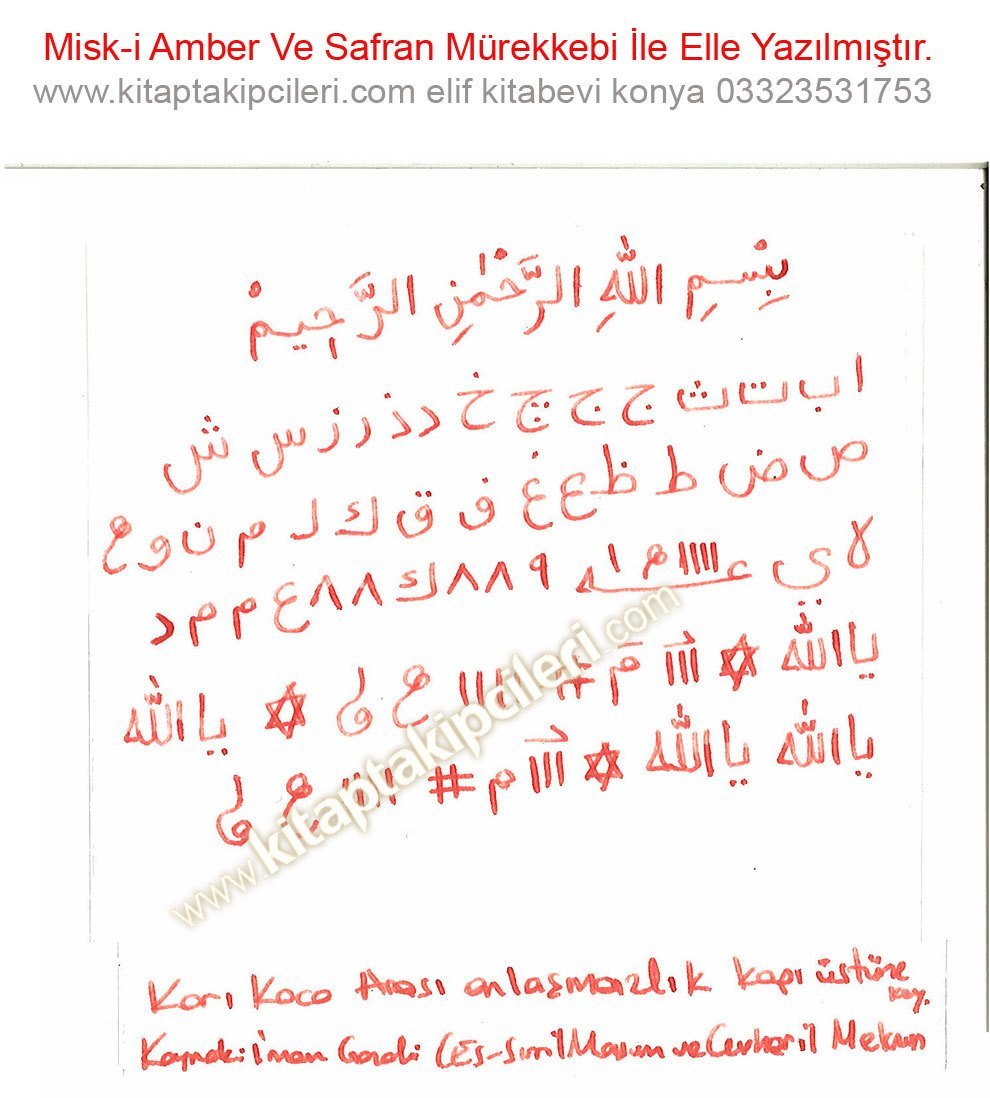 Misk-i Amber Ve Safran Mürekkebi İle Elle Yazılmıştır.
www.kitaptakipcileri.com elif kitabevi konya 03323531753
بِسْمِ اللهِ الرَّحْمٰنِ الرَّحِيمْ
ا ب ت ث ج ج چ خ د ذ ر ز س ش
ص ض ط ظ ع غ ف ق ك ل م ن و ه
لا ي ٨٨٩ ك ٨٨ ع م م د
يا الله ✡ ااا م # اااا ✡ يا الله
يا الله يا الله ✡ ااا م # اااا
www.kitaptakipcileri.com
Karı Koca Arası anlaşmazlık kapı üstüne koy.
Kaynak: İmam Gazali (Es-Sırril Masun ve Cevheril Meknun